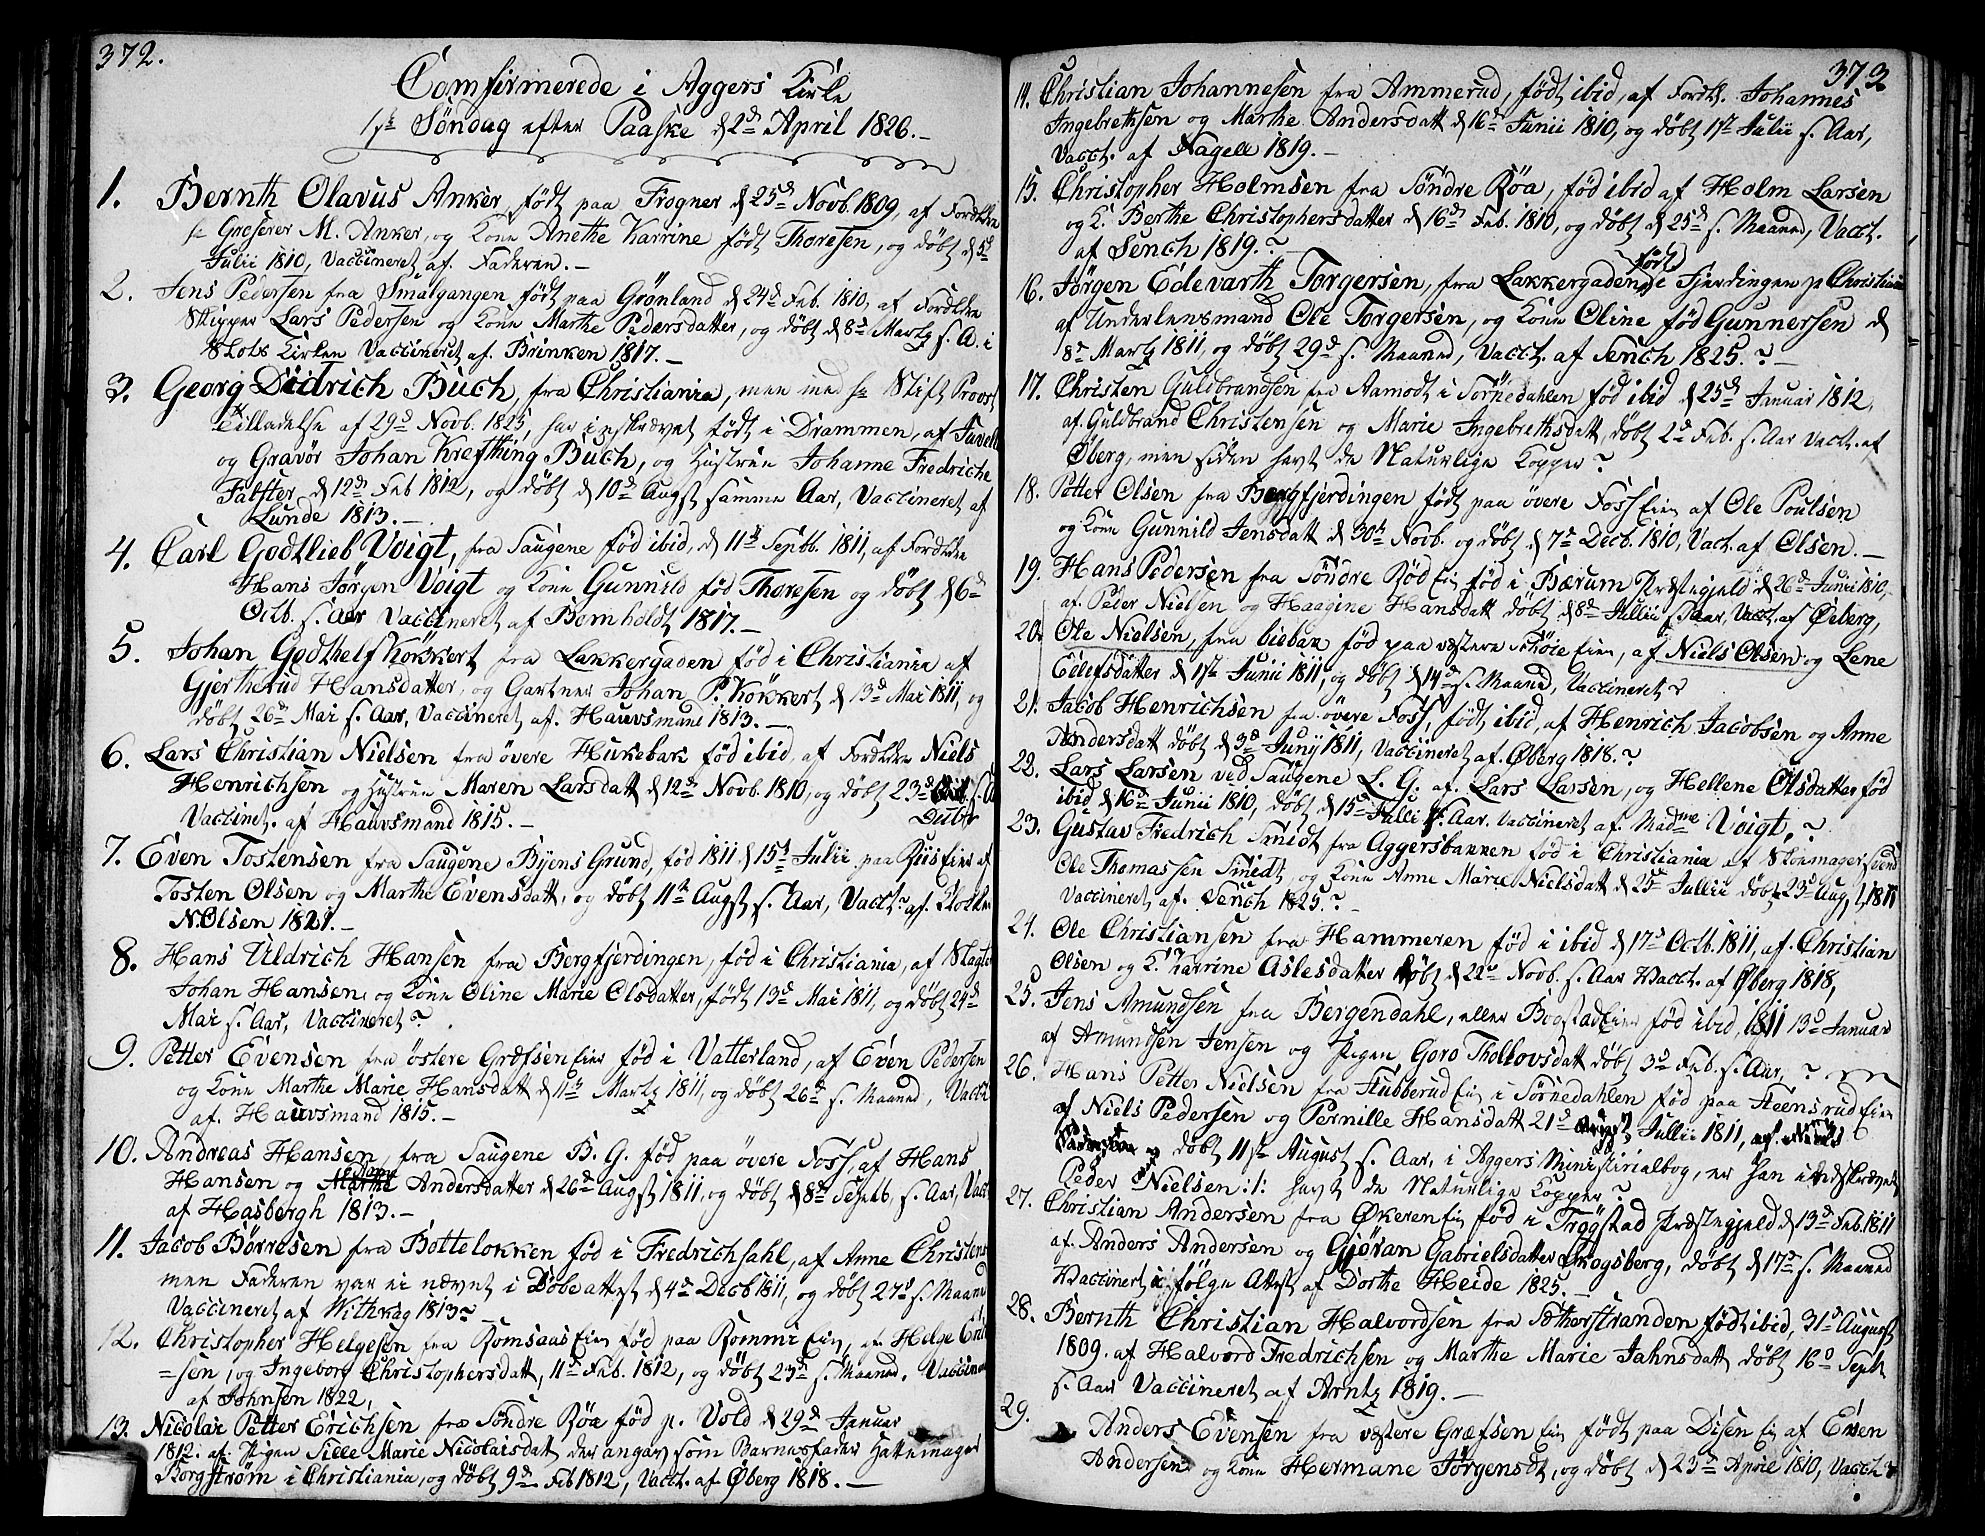 372.
Comfirmerede i Aggers Kirke
1ste Söndag efter Paaske d 2den April 1826.-
1. Bernth Olavus Anker, födt paa Frogner d 25de Novb. 1809, af Forældre
Groserer M. Anker, og Kone Anethe Karrine födt Thoresen, og döbt d 5te
Julii 1810, Vaccineret af Faderen.-
2. Jens Pedersen fra Smalgangen födt paa Grönland d 24de Feb. 1810, af Forældre
Skipper Lars Pedersen og Kone Marthe Pedersdatter, og döbt d 8de Martz s. A. i
Slots Kirken Vaccineret af Brinken 1817.-
3. Georg Didrich Buch, fra Christiania, men med Stift Provst
Tilladelse af 29de Novb. 1825, her inskrævet födt i Drammen, af Juvel
og Gravör Johan Krefthing Büch, og Hustrue Johanne Fredriche
Falster d 12de Feb 1812, og döbt d 10de Augst samme Aar, Vaccineret af
Lunde 1813.-
4. Carl Godtlieb Voigt, fra Saugene föd ibid, d 11te Septb. 1811, af Forældre
Hans Jörgen Voigt og Kone Gunnild föd Thoresen og döbt d 6te
Octb. s. Aar Vaccineret af Bomholdt 1817.-
5. Johan Godthelf Kökkert fra Lakkergaden föd i Christiania af
Gjertherud Hansdatter, og Gartner Johan P. Kökkert d 13de Mai 1811, og
döbt 26de Mai s. Aar, Vaccineret af Hauvsmand 1813.-
6. Lars Christian Nielsen fra övere Hukebak föd ibid, af Forældre Niels
Henrichsen og Hustrue Maren Larsdatt d 12te Novb. 1810, og döbt 23de s. A
Vaccinet. af Hauvsmand 1815.-
7. Even Tostensen fra Saugene Byens Grund, föd 1811 d 15de Julii paa Riis Eie af
Tosten Olsen og Marthe Evensdatt, og döbt 11te Augst s. Aar, Vacct. af. Klokker
N. Olsen 1821.-
8. Hans Uldrich Hansen fra Bergfjerdingen, föd i Christiania, af Slagter
Johan Hansen, og Kone Oline Marie Olsdatter, födt 13de Mai 1811, og döbt 24de
Mai s. Aar, Vaccineret?
9. Petter Evensen fra östere Græfsen Eie föd i Vatterland, af Even Pedersen
og Kone Marthe Marie Hansdatt d 11te Martz 1811, og döbt 26de s. Maaned, Vacct
af. Hauvsmand 1815.-
10. Andreas Hansen, fra Saugene B. G. föd paa övere Foss, af Hans
Hansen og Anne Andersdatter d 26de Augst 1811, og döbt d 8de Septb, s. Aar, Vacct
af Hasbergh 1813.-
11. Jacob Börresen fra Bottelökken föd i Fredrichshahl, af Anne Christens
men Faderen var ei nævnt i Döbeattest d 4de Decb 1811, og döbt 27de s. Maaned
Vaccineret af Withkag 1813?
12. Christopher Helgesen fra Romsaas Eie föd paa Rommi Eie, af Helge Erik
=sen, og Ingeborg Christophersdatt, 11te Feb. 1812, og döbt 23de s. Maaned. Vaccineret
af Johnsen 1822,
13. Nicolai Petter Erichsen, fra Söndre Röa föd p. Vold d 29de Januar
1812. af. Pigen Sille Marie Nicolaisdatt der angav som Barnefader Hattemager
Borgström i Christiania, og döbt 9de Feb 1812, Vacct. af Øberg 1818.-
373
14. Christian Johannesen fra Ammerud, födt ibid, af Foræld. Johannes
Ingebrethsen og Marthe Andersdatt d 16de Junii 1810, og döbt 1ste Julii s. Aar,
Vacct. af Nagell 1819.-
15. Christopher Holmsen fra Söndre Röa, föd ibid af Holm Larsen
og K. Berthe Christophersdatter d 16de Feb. 1810, og döbt d 25de s. Maaned, Vacct.
af Sench 1819.?
16. Jörgen Edevarth Torgersen, fra Lakkergaden födt i Fjerdingen p Christiania
af Underlensmand Ole Torgersen, og Kone Oline föd Gunnersen d
8de Martz 1811, og döbt 29de s. Maaned, Vacct. af Sench 1825.?
17. Christen Guldbrandsen fra Aamodt i Sörkedahlen föd ibid d 25de Januar 1812,
af. Guldbrand Christensen og Marie Ingebrethsdatt, döbt 2de Feb. s. Aar Vacct. af
Øberg, men siden havt de Naturlige Kopper?
18. Petter Olsen fra Bergfjerdingen födt paa övere Foss Eie af Ole Poulsen
og Kone Gunnild Jensdatt d 30te Novb. og döbt d 7de Decb. 1810, Vact. af Olsen.-
19. Hans Pedersen fra Söndre Röd Eie föd i Bærum Præstegjeld d 26de Junii 1810,
af. Peder Nielsen og Haagine Hansdatt döbt d 8de Julii s. Aar, Vacct. af Øeberg,
20. Ole Nielsen, fra biebak föd paa vestere Schöie Eie, af Niels Olsen og Lene
Edlefsdatter d 1ste Junii 1811, og döbt d 14de s. Maaned, Vaccineret?
21. Jacob Henrichsen fra övere Foss, födt ibid, af Henrich Jacobsen og Anne
Andersdatt döbt d 3de Junij 1811, Vaccineret af Øberg 1818.?
22. Lars Larsen ved Saugene L. G. af. Lars Larsen, og Hellene Olsdatter föd
ibid d 16de Junii 1810, döbt d 15de Julii s. Aar. Vaccineret af Madme Voigt,?
23. Gustav Fredrich Smidt fra Aggersbakken föd i Christiania af Skomagersvend
Ole Thomassen Smidt, og Kone Anne Marie Nielsdatt d 25de Jullii döbt 23de Aug, 1811
Vaccineret af. Sench 1825.?
24. Ole Christiansen fra Hammeren föd i ibid d 17de Octb. 1811, af. Christian
Olsen og K. Karrine Aslesdatter döbt d 22de Novb. s. Aar Vacct. af Øberg 1818,
25. Jens Amundsen fra Bergendahl, eller Bogstad Eie föd ibid, 1811 13de Januar
af Amundsen Jensen og Pigen Goro Thollovsdatt döbt 3de Feb. s. Aar, ?
26. Hans Petter Nielsen fra Fluberud Eie i Sörkedahlen föd paa Steensrud Eie
af Niels Pedersen og Pernille Hansdatt 21de Jullii 1811,
döbt 11te August s. Aar, i Aggers Ministirialbog, er han indskrevet
af Peder Nielsen :/: havt de Naturlige Kopper?
27. Christian Andersen fra Økeren Eie föd i Tröystad Præstegjeld d 13de Feb. 1811
af. Anders Andersen og Gjöran Gabrielsdatter Skogsberg, döbt d 17de s. Maaned
Vaccineret i fölge Attest af Dorthe Heide 1825.-
28. Bernth Christian Halvordsen fra Sætherstranden födt ibid, 31de August
1809. af Halvord Fredrichsen og Marthe Marie Jahnsdatt döbt 16de Septb
s. Aar Vaccineret af Arntz 1819.-
29. Anders Evensen fra vestere Græfsen Eie födt paa Disen Eie af Even
Andersen og Kone Hermane Jörgensdt, og döbt d 23de April 1810, Vacct?